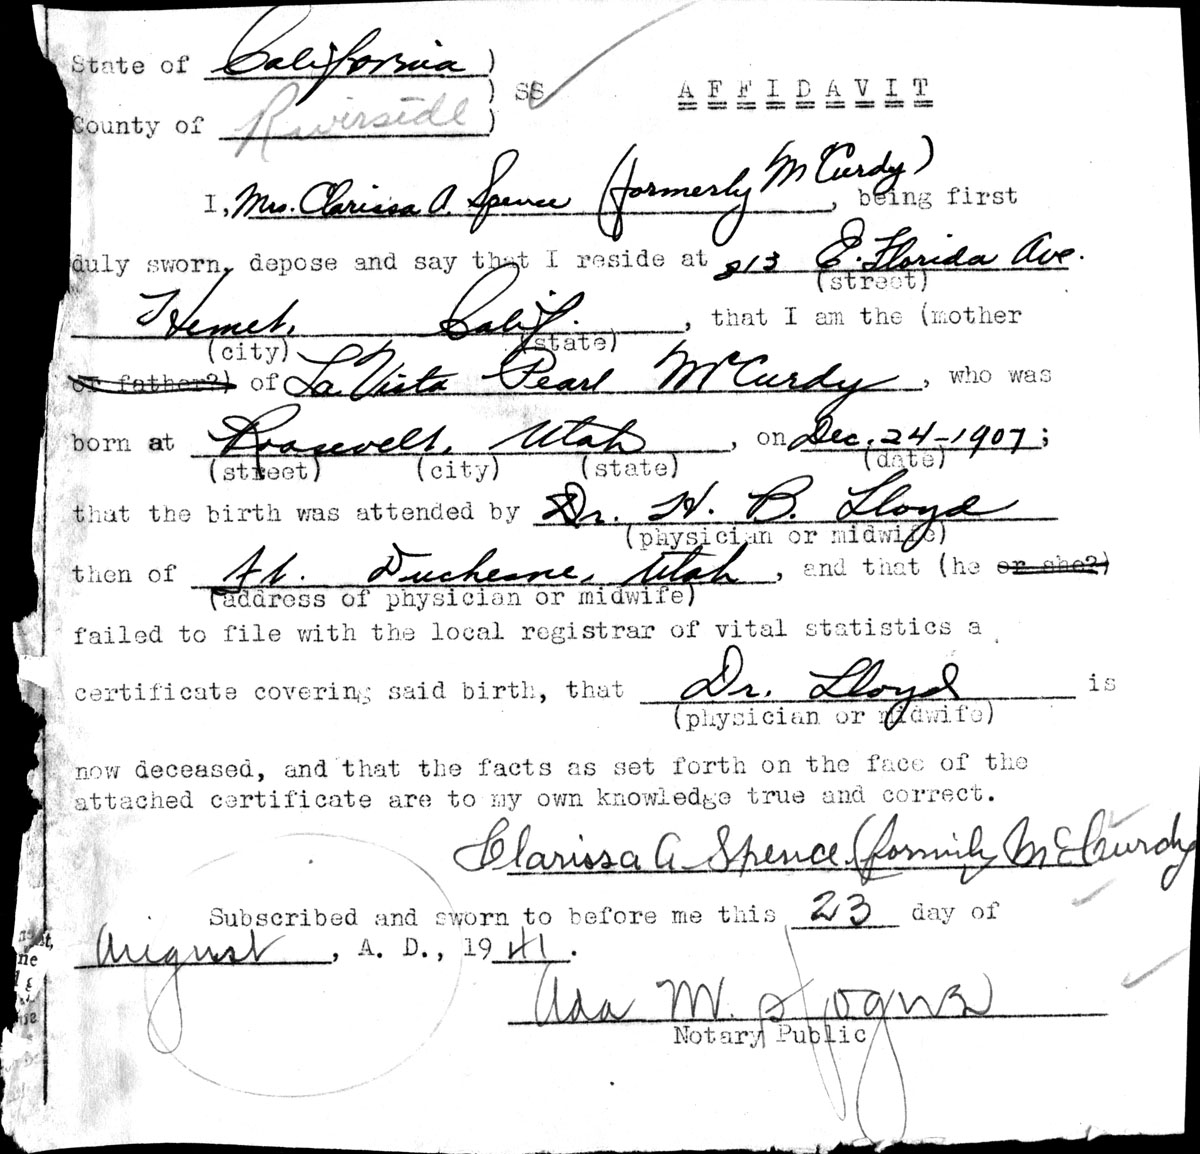 State of California )
) SS AFFIDAVIT
County of Riverside )
I, Mrs. Clarissa A. Spence (formerly McCurdy), being first
duly sworn, depose and say that I reside at 813 E. Florida Ave.
(street)
Hemet, Calif., that I am the (mother
(city) (state)
or father?) of La Vista Pearl McCurdy, who was
born at Roosevelt, Utah, on Dec. 24-1907;
(street) (city) (state) (date)
that the birth was attended by Dr. H. B. Lloyd
(physician or midwife)
then of Ft. Duchesne, Utah, and that (he or she?)
(address of physician or midwife)
failed to file with the local registrar of vital statistics a
certificate covering said birth, that Dr. Lloyd is
(physician or midwife)
now deceased, and that the facts as set forth on the face of the
attached certificate are to my own knowledge true and correct.
Clarissa A Spence (formerly McCurdy
Subscribed and sworn to before me this 23 day of
August, A. D., 1941.
Ada M.
Notary Public